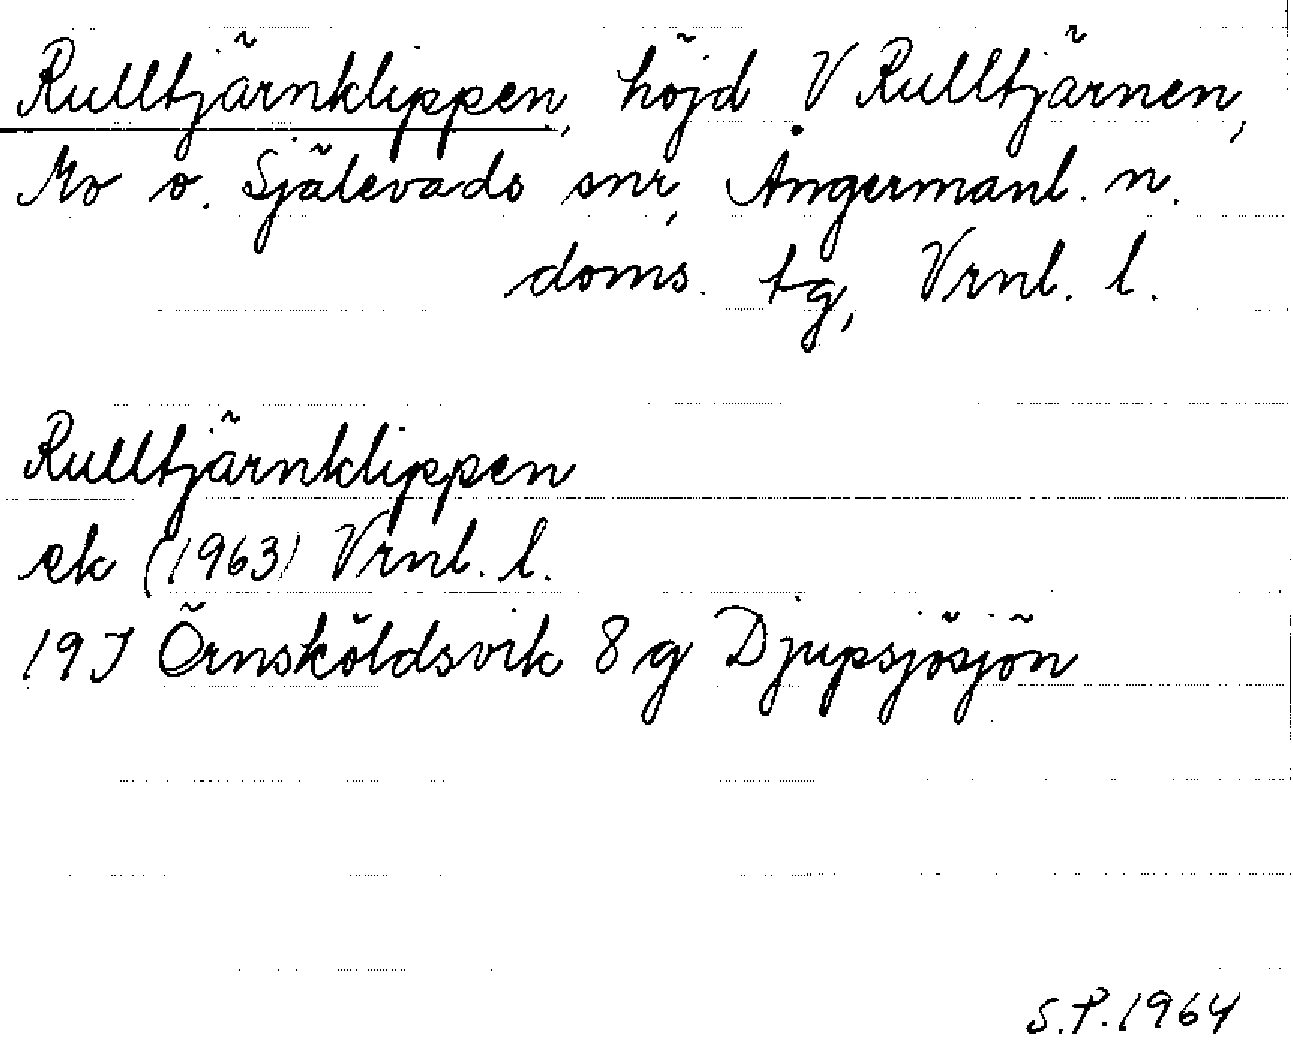 Rulltjärnklippen, höjd V Rulltjärnen,
Mo o. Själevads snr, Ångermanl. n.
doms. tg, Vrnl. l.
Rulltjärnklippen
ek (1963) Vrnl. l.
19J Örnsköldsvik 8g Djupsjösjön
S.P. 1964